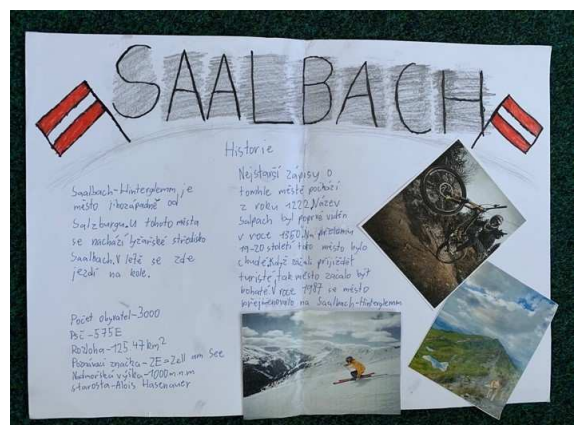 SAALBACH
Historie
Saalbach-Hinterglemm je
město jihozápadně od
Salzburgu. U tohoto města
se nachází lyžařské středisko
Saalbach. V létě se zde
jezdí na kole.
Počet obyvatel-3000
PSČ-5753
Rozloha-125,47 km²
Poznávací značka-ZE=Zell am See
Nadmořská výška-1000 m.n.m
starosta-Alois Hasenauer
Nejstarší zápisy o
tomhle městě pochází
z roku 1222. Název
Salpach byl poprvé
v roce 1350. Na přelomu
19-20 století toto město bylo
chudé. Když začali přijíždět
turisté, tak město začalo být
bohaté. V roce 1987 se město
přejmenovalo na Saalbach-Hinterglemm